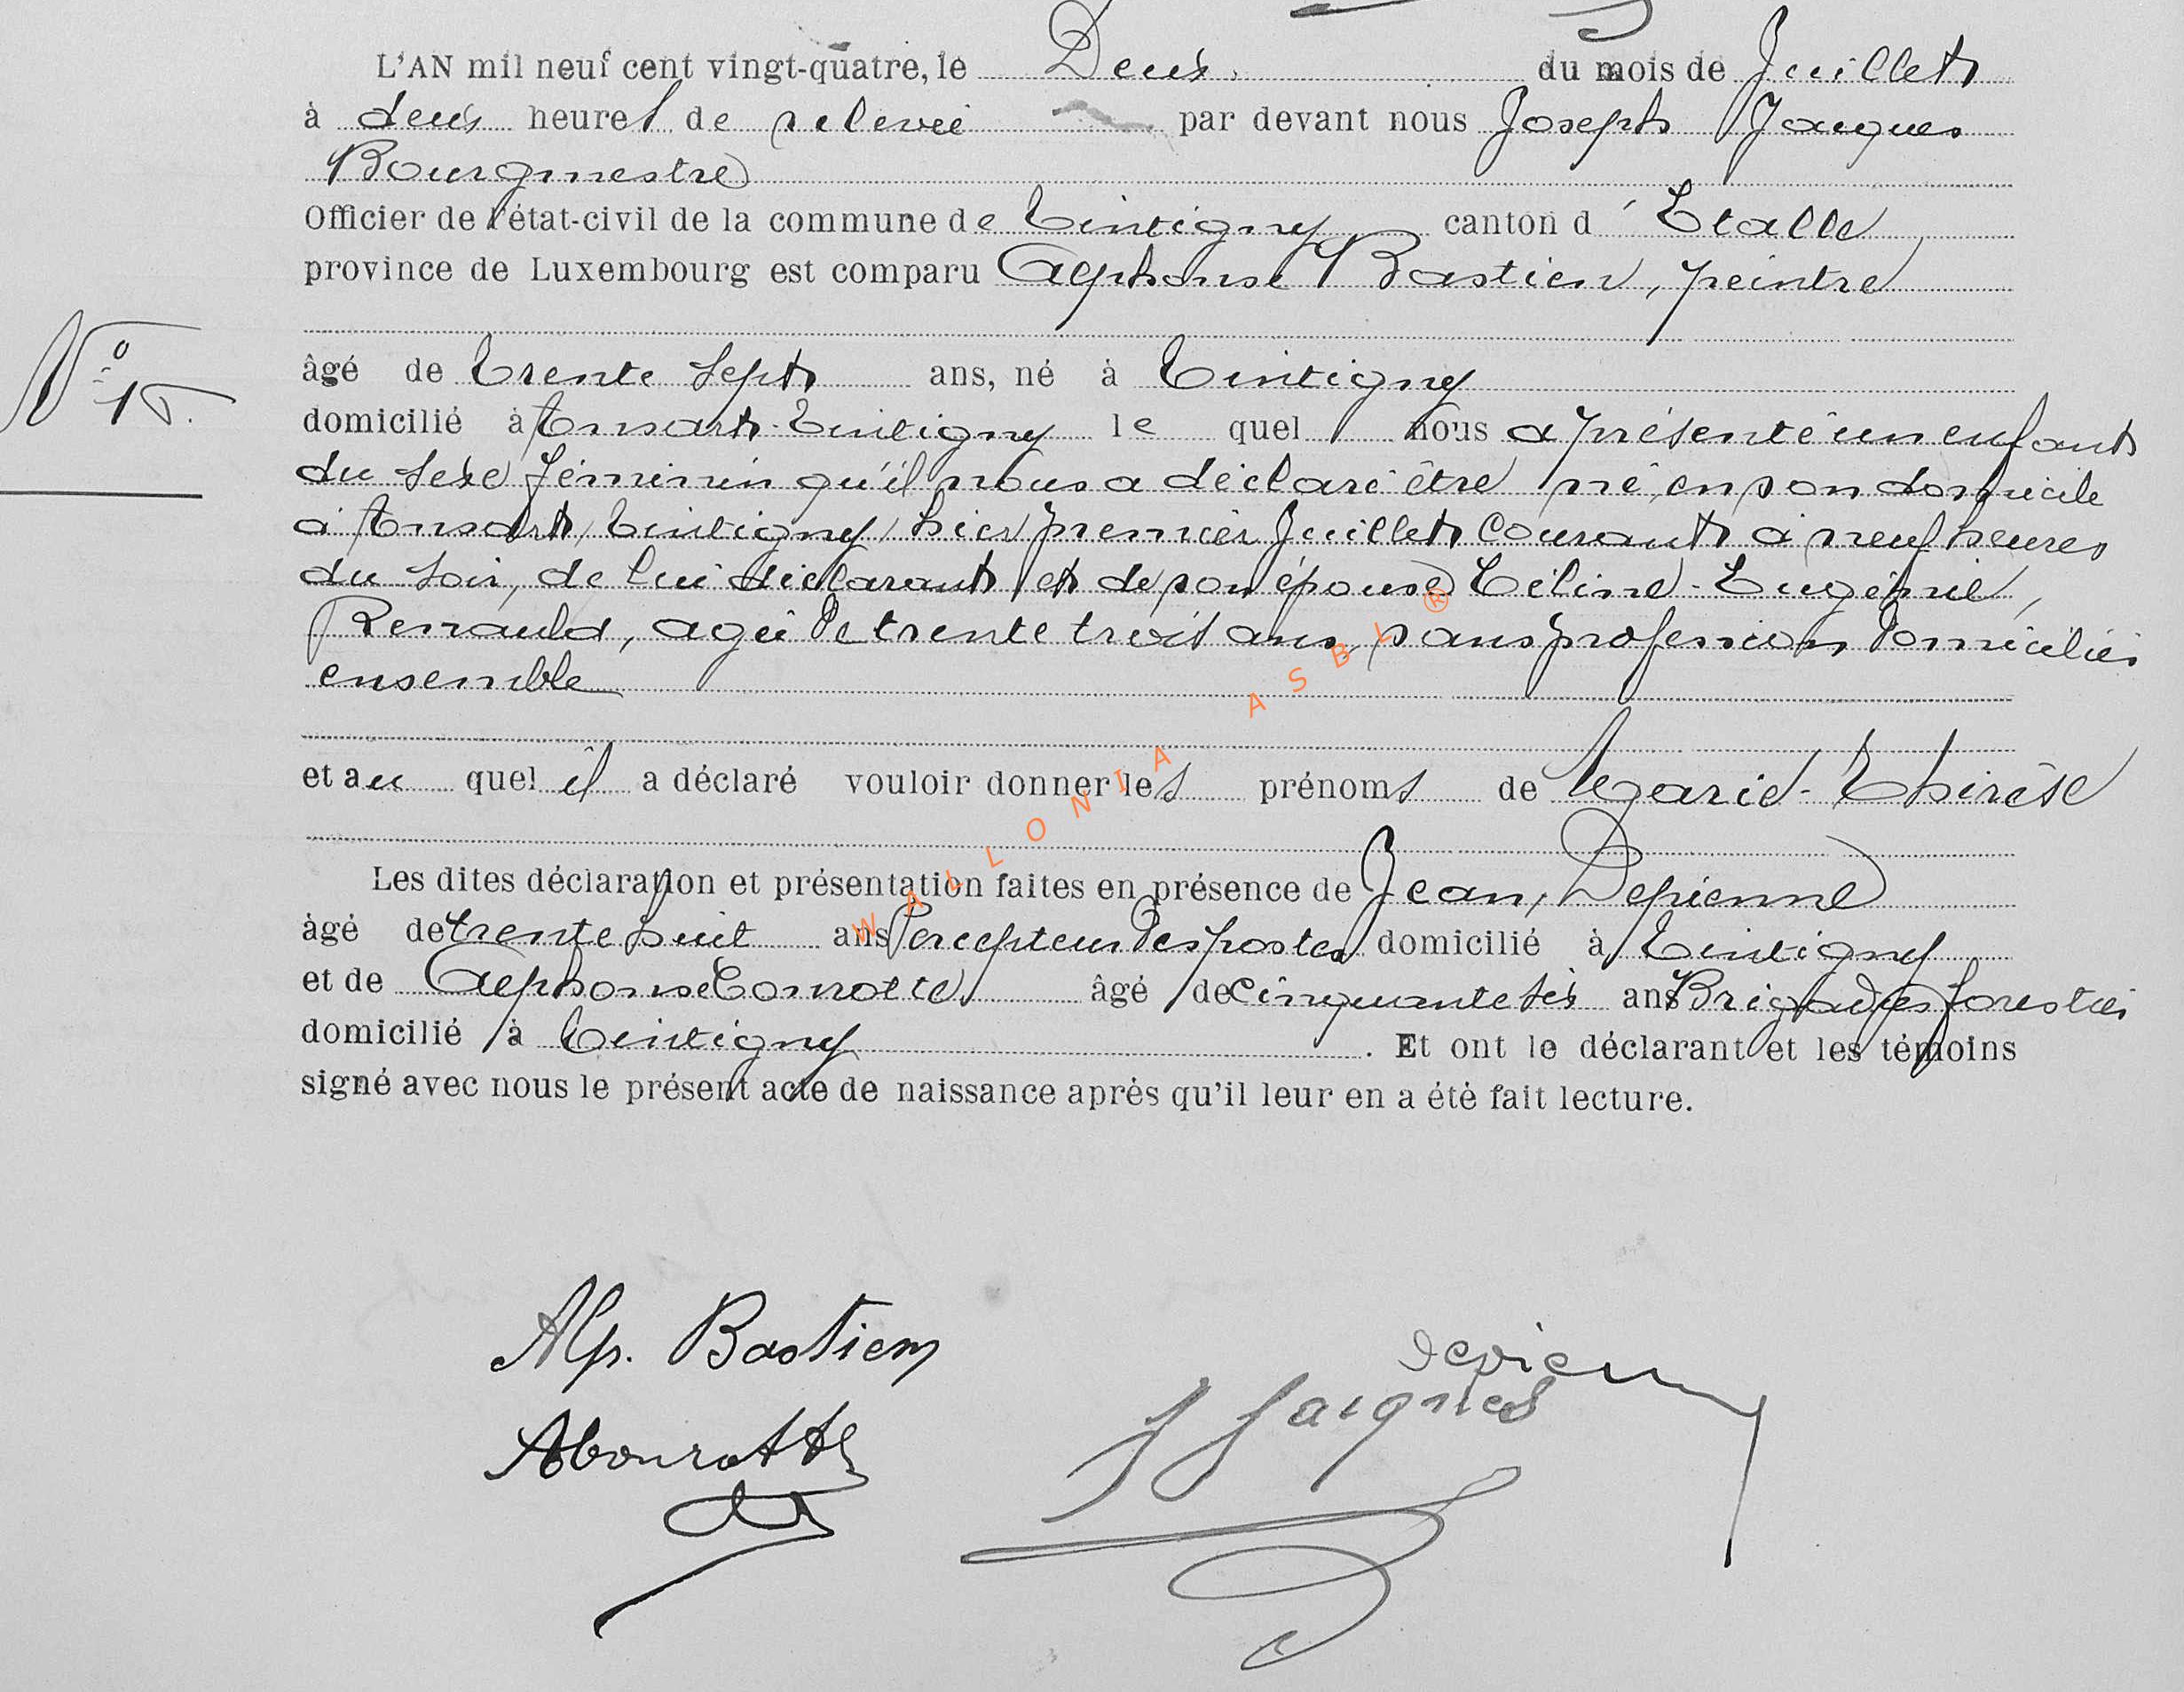 L'AN mil neuf cent vingt-quatre, le Deux du mois de Juillet
à deux heures de relevée par devant nous Joseph Jacques
Bourgmestre
Officier de l'état-civil de la commune de Tintigny canton d' Etalle
province de Luxembourg est comparu Alphonse Bastien, peintre
âgé de trente sept ans, né à Tintigny
N° 15.
domicilié à Ansart-Tintigny le quel nous a présenté un enfant
du sexe féminin qu'il nous a déclaré être né, en son domicile
à Ansart, Tintigny, hier premier Juillet courant à neuf heures
du soir, de lui déclarant et de son épouse Céline-Eugénie,
Renauld, agée de trente trois ans, sans profession domiciliés
ensemble
et au quel il a déclaré vouloir donner les prénoms de Marie-Thérèse
Les dites déclaration et présentation faites en présence de Jean, Depienne
âgé de trente huit ans Percepteur des postes domicilié à Tintigny
et de Alphonse Conrotte âgé de cinquante six ans Brigadier forestier
domicilié à Tintigny . Et ont le déclarant et les témoins
signé avec nous le présent acte de naissance après qu'il leur en a été fait lecture.
WALLONIA ASBL ®
Alp. Bastien
Depienne
J Jacques
AConrotte